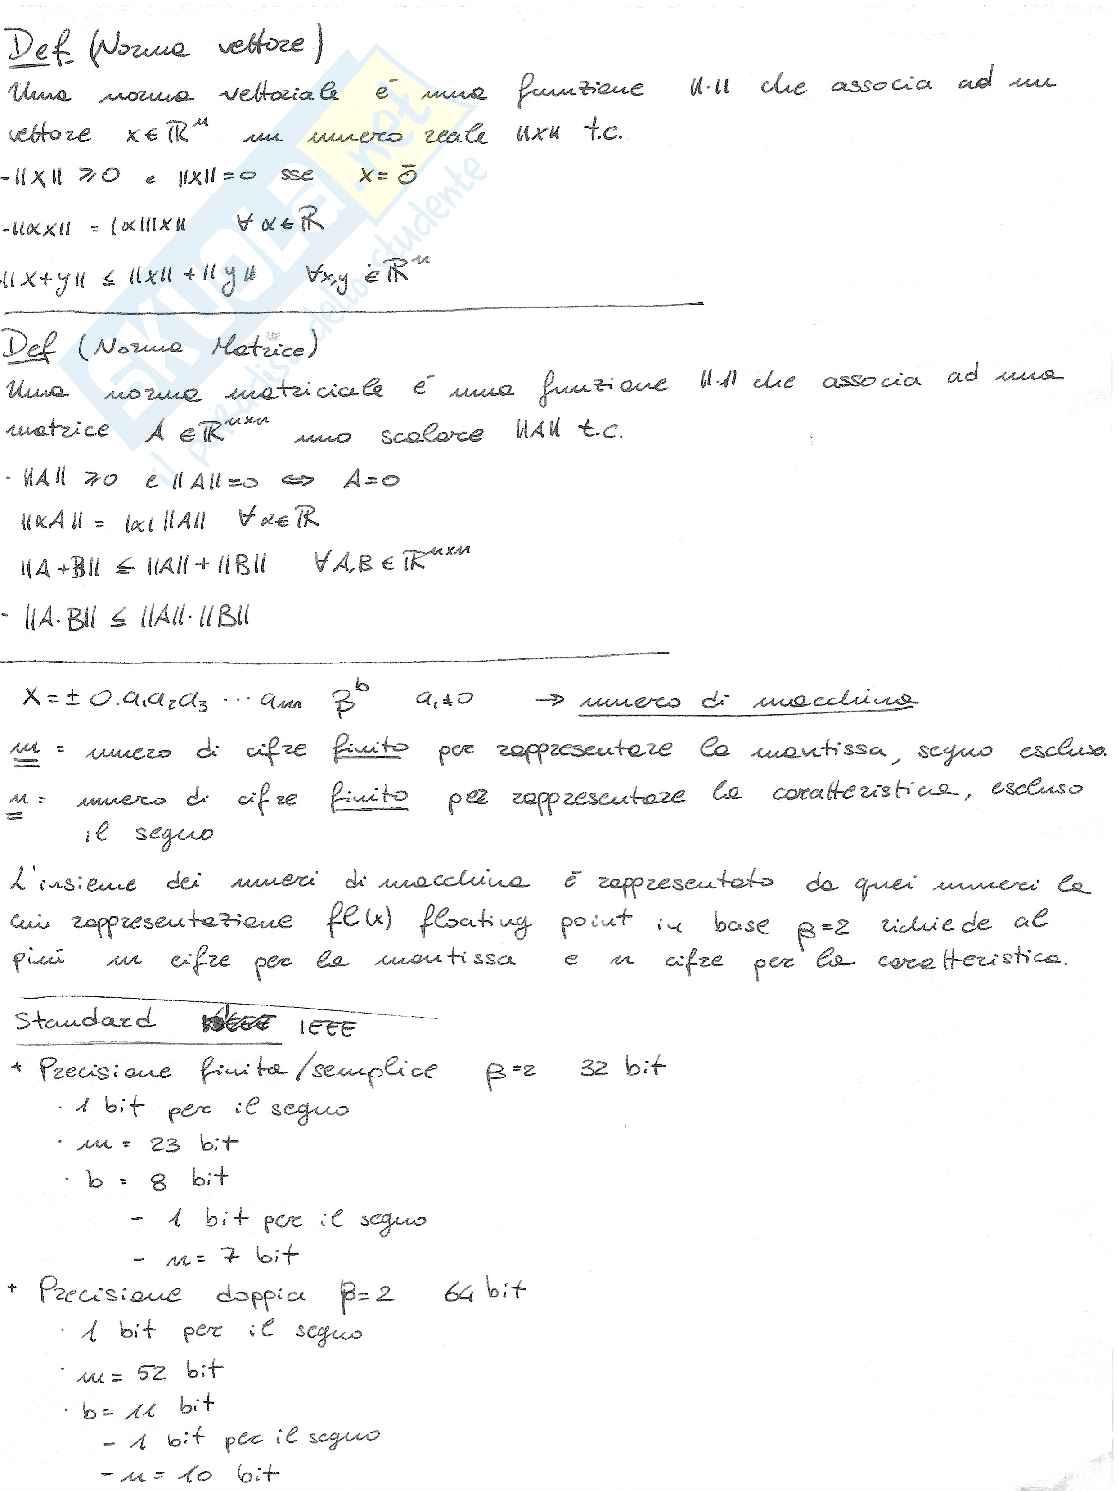 Def (Norma vettore)
Una norma vettoriale è una funzione ||·|| che associa ad un
vettore x ∈ ℝⁿ un numero reale ||x|| t.c.
- ||x|| ⩾ 0 e ||x|| = 0 sse x = 0̄
- ||αx|| = |α| ||x|| ∀ α ∈ ℝ
||x+y|| ≤ ||x|| + ||y|| ∀x,y ∈ ℝⁿ
Def (Norma Matrice)
Una norma matriciale è una funzione ||·|| che associa ad una
matrice A ∈ ℝⁿˣⁿ uno scalare ||A|| t.c.
· ||A|| ⩾ 0 e ||A|| = 0 ⇔ A = 0
||αA|| = |α| ||A|| ∀ α ∈ ℝ
||A+B|| ≤ ||A|| + ||B|| ∀A,B ∈ ℝⁿˣⁿ
- ||A·B|| ≤ ||A||·||B||
x = ± 0.a₁a₂a₃ ··· aₘ βᵇ a₁≠0 → numero di macchina
m = numero di cifre finito per rappresentare la mantissa, segno escluso.
n = numero di cifre finito per rappresentare la caratteristica, escluso
il segno
L'insieme dei numeri di macchina è rappresentato da quei numeri la
cui rappresentazione fl(x) floating point in base β=2 richiede al
più m cifre per la mantissa e n cifre per la caratteristica.
Standard IEEE
* Precisione finita/semplice β=2 32 bit
· 1 bit per il segno
· m = 23 bit
· b = 8 bit
- 1 bit per il segno
- n = 7 bit
* Precisione doppia β=2 64 bit
· 1 bit per il segno
· m = 52 bit
· b = 11 bit
- 1 bit per il segno
- n = 10 bit
SKUOLA.net
il paradiso dello studente